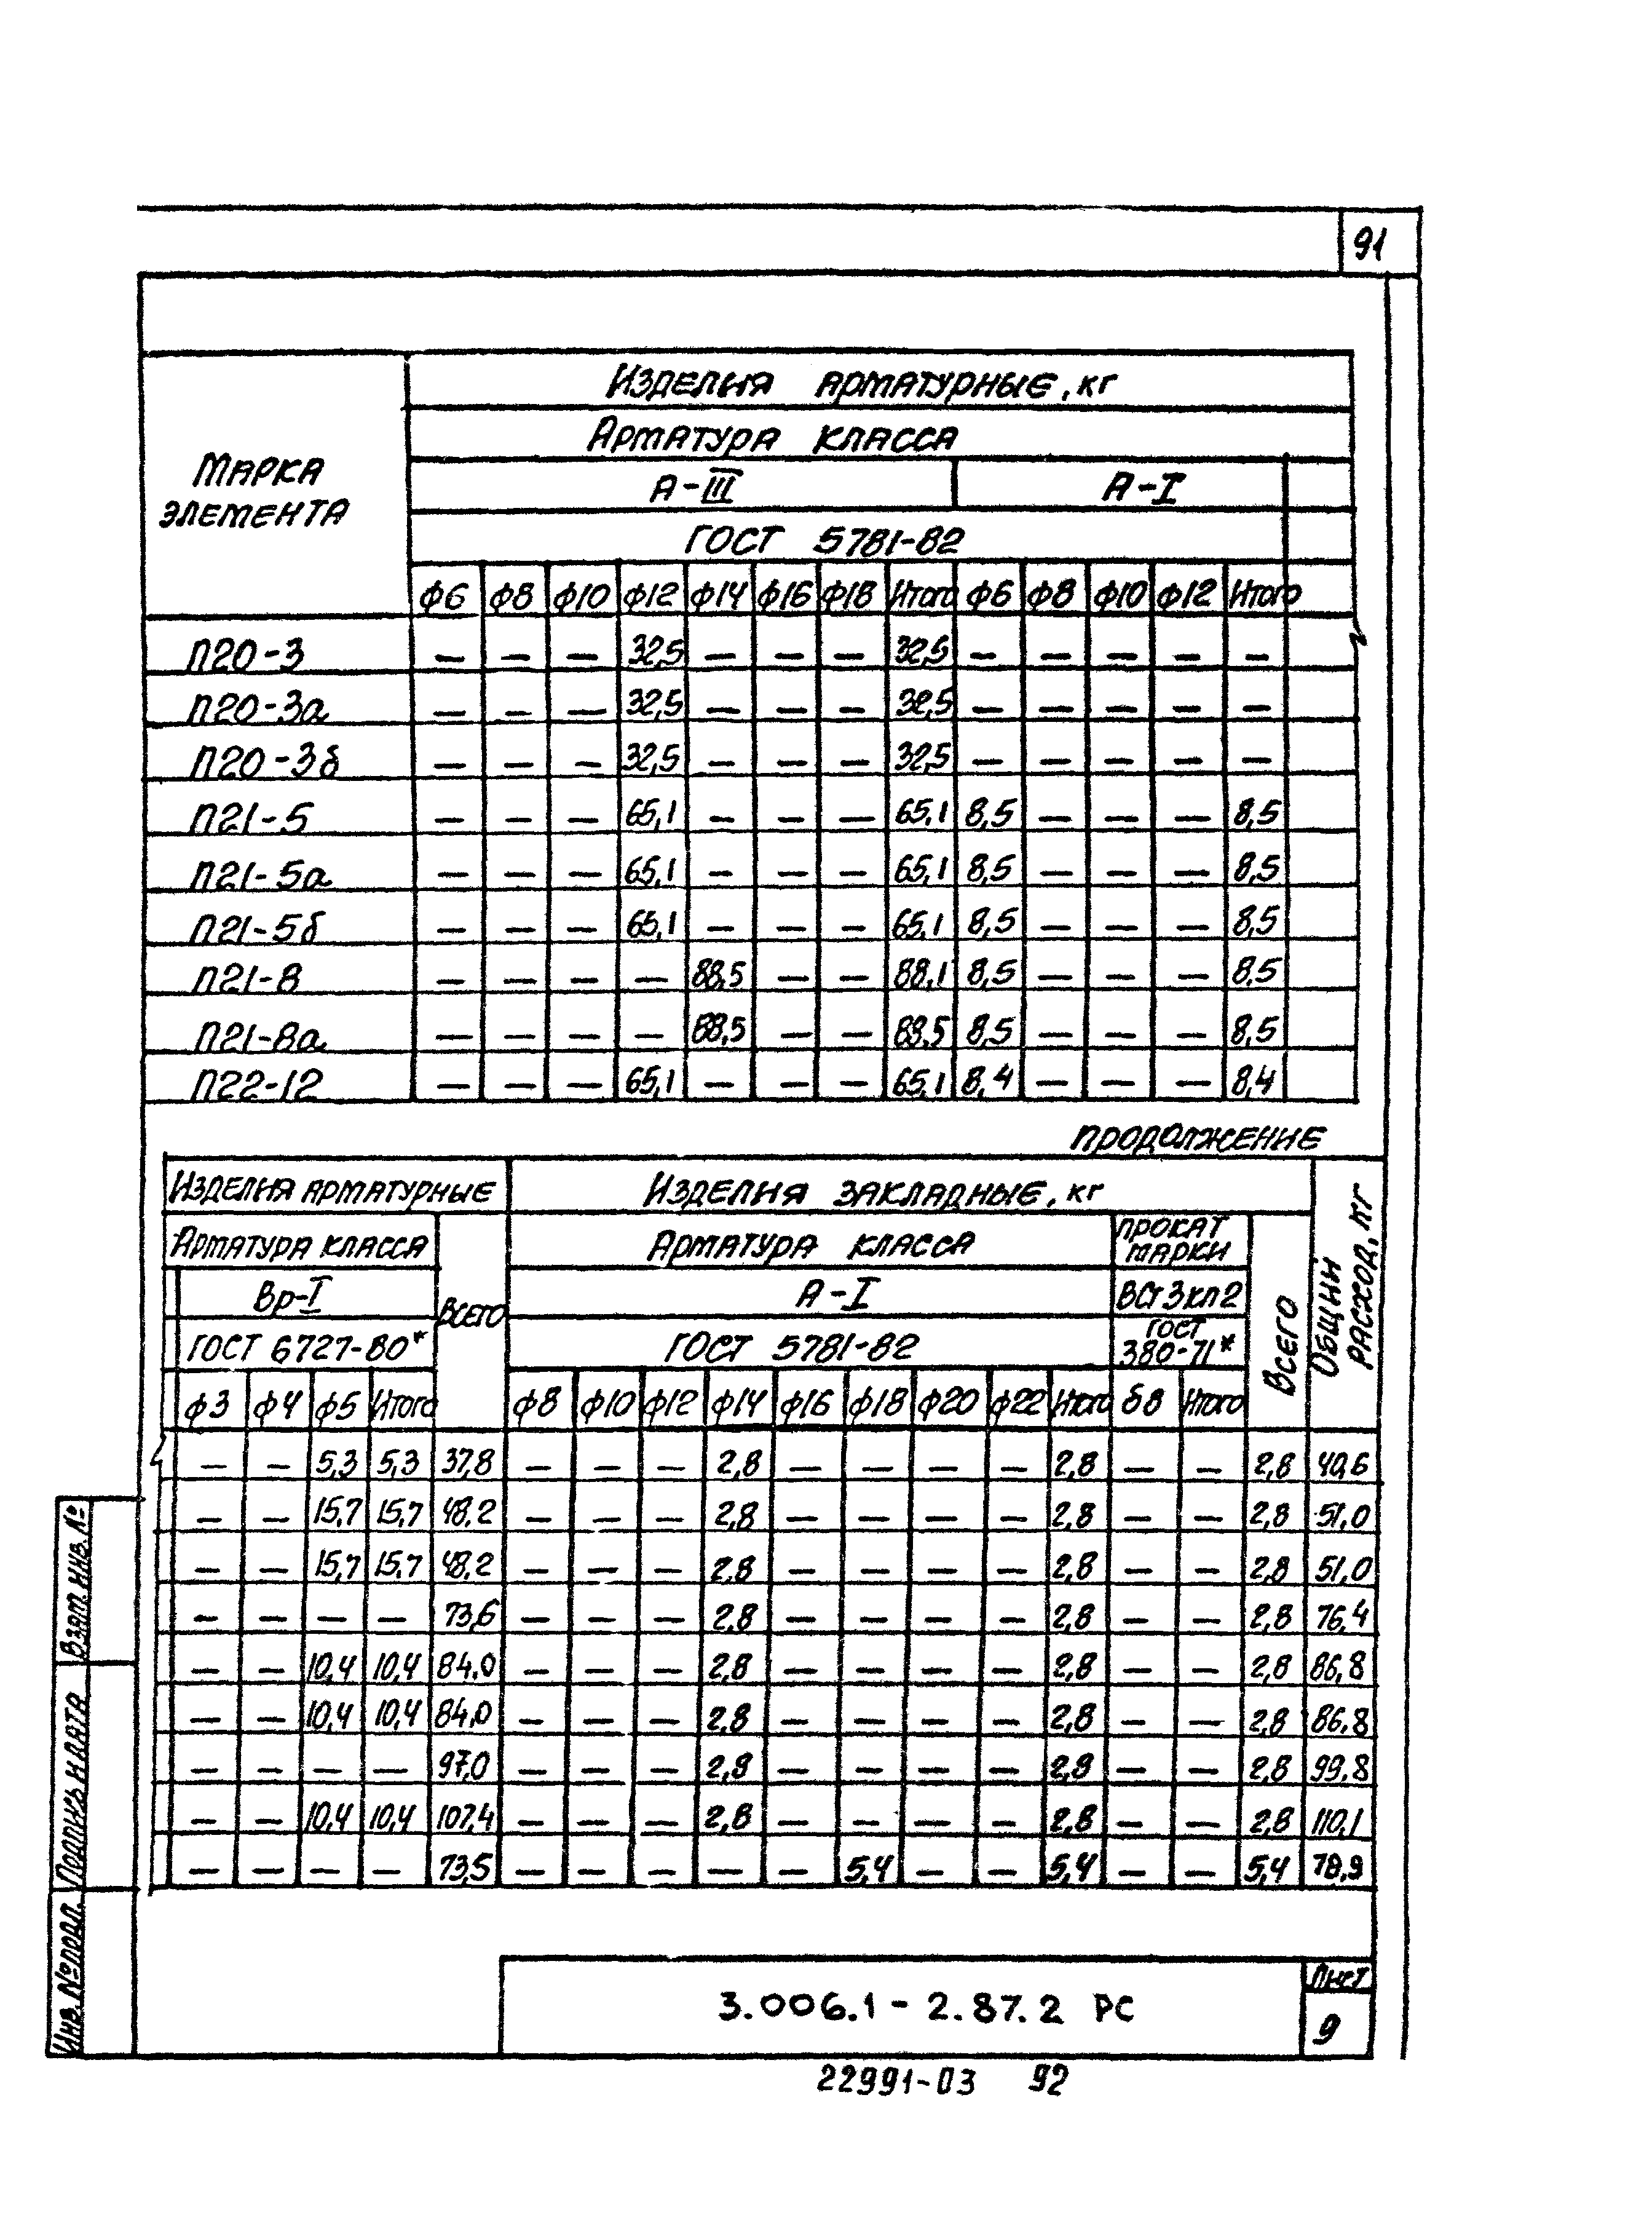 91
Изделия арматурные, кг
Арматура класса
Марка элемента
А-III А-I
ГОСТ 5781-82
ф6 ф8 ф10 ф12 ф14 ф16 ф18 Итого ф6 ф8 ф10 ф12 Итого
П20-3 — — — 32,5 — — — 32,5 — — — — —
П20-3а — — — 32,5 — — — 32,5 — — — — —
П20-3б — — — 32,5 — — — 32,5 — — — — —
П21-5 — — — 65,1 — — — 65,1 8,5 — — — 8,5
П21-5а — — — 65,1 — — — 65,1 8,5 — — — 8,5
П21-5б — — — 65,1 — — — 65,1 8,5 — — — 8,5
П21-8 — — — — 88,5 — — 88,1 8,5 — — — 8,5
П21-8а — — — — 88,5 — — 88,5 8,5 — — — 8,5
П22-12 — — — 65,1 — — — 65,1 8,4 — — — 8,4
продолжение
Изделия арматурные Изделия закладные, кг Общий расход, кг
Арматура класса Всего Арматура класса прокат марки Всего
Вр-I А-I ВСт3кп2
ГОСТ 6727-80* ГОСТ 5781-82 ГОСТ 380-71*
ф3 ф4 ф5 Итого ф8 ф10 ф12 ф14 ф16 ф18 ф20 ф22 Итого б8 Итого
— — 5,3 5,3 37,8 — — — 2,8 — — — — 2,8 — — 2,8 40,6
— — 15,7 15,7 48,2 — — — 2,8 — — — — 2,8 — — 2,8 51,0
— — 15,7 15,7 48,2 — — — 2,8 — — — — 2,8 — — 2,8 51,0
— — — — 73,6 — — — 2,8 — — — — 2,8 — — 2,8 76,4
— — 10,4 10,4 84,0 — — — 2,8 — — — — 2,8 — — 2,8 86,8
— — 10,4 10,4 84,0 — — — 2,8 — — — — 2,8 — — 2,8 86,8
— — — — 97,0 — — — 2,8 — — — — 2,8 — — 2,8 99,8
— — 10,4 10,4 107,4 — — — 2,8 — — — — 2,8 — — 2,8 110,1
— — — — 73,5 — — — — — 5,4 — — 5,4 — — 5,4 78,9
Взам. инв. №
Подпись и дата
Инв. № подл.
3.006.1-2.87.2 РС
Лист
9
22991-03 92